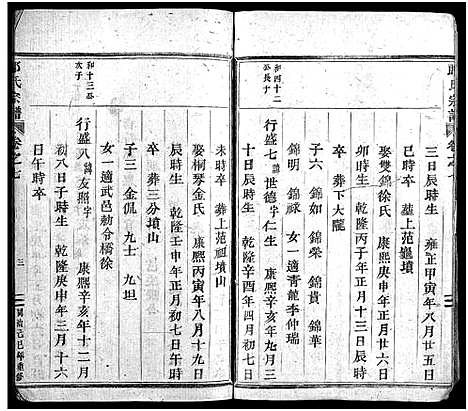 氏宗譜
卷之七
三日辰時生 雍正甲寅年八月廿五日
巳時卒 墓上范龜墳
娶雙錦徐氏 康熙 年正月廿六日
卯時生 乾隆丙子年正月十三日辰時
卒 葬下大隴
子六 錦如 錦榮 錦貴 錦華
錦明 錦祿 女一適青龍李仲瑞
和四十二
公長子
行盛七諱世德字仁生 康熙辛亥年九月三
十日辰時生 乾隆辛酉年四月初七日
未時卒 葬上范祖墳山
娶桐琴金氏 康熙丙寅年八月十九日
辰時生 乾隆壬申年正月初七日午時
卒 葬三分墳山
子三 金侃 九士 九坦
女一適武邑勅令橋徐
和十三公
次子
行盛八諱友熙字 康熙辛亥年十二月
初八日子時生 乾隆庚申年三月十六
日午時卒
氏宗譜
卷之七
三
同治己巳年重修